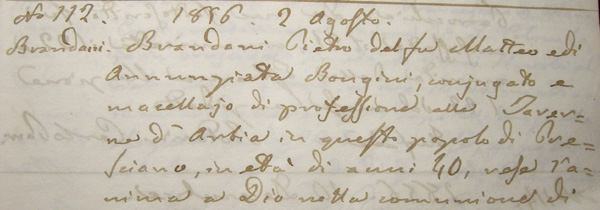 No 112. 1856. 2 Agosto.
Brandani. Brandani Pietro del fu Matteo e di
Annunziata Bongini, conjugato e
macellajo di professione alle Taver=
ne d'Arbia in questo popolo di Pre=
sciano, in età di anni 40, rese l'a=
nima a Dio nella comunione di